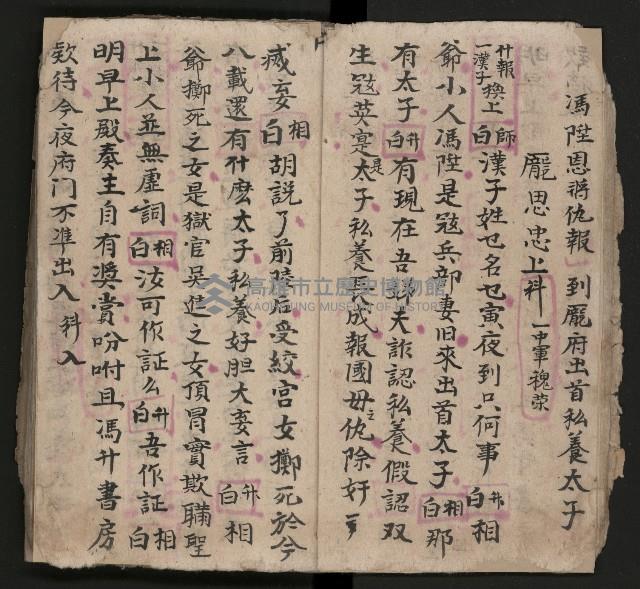 馮陞恩蔣仇報 到龐府出首私養太子
龐思忠上科 一中軍魏荣
什報一漢子換上 白師 漢子姓乜名乜寅夜到只何事 白升 相
爺小人馮陞是冦兵部妻旧來出首太子 白相 那
有太子 白升 有現在吾師夫詐認私養假認双
生冦英寔是太子私養長成報國母之仇除奸
烕妄 白相 胡説了前陸后受絞宮女擲死於今
八載還有什麽太子私養好胆大妄言 白升 相
爺擲死之女是獄官吳進之女頂冒實欺瞞聖
上小人並無虛詞 白相 汝可作証么 白升 吾作証 白相
明早上殿奏主自有奖賞吩咐且馮升書房
欵待今夜府门不凖出入 科入
高雄市立歷史博物館
KAOHSIUNG MUSEUM OF HISTORY